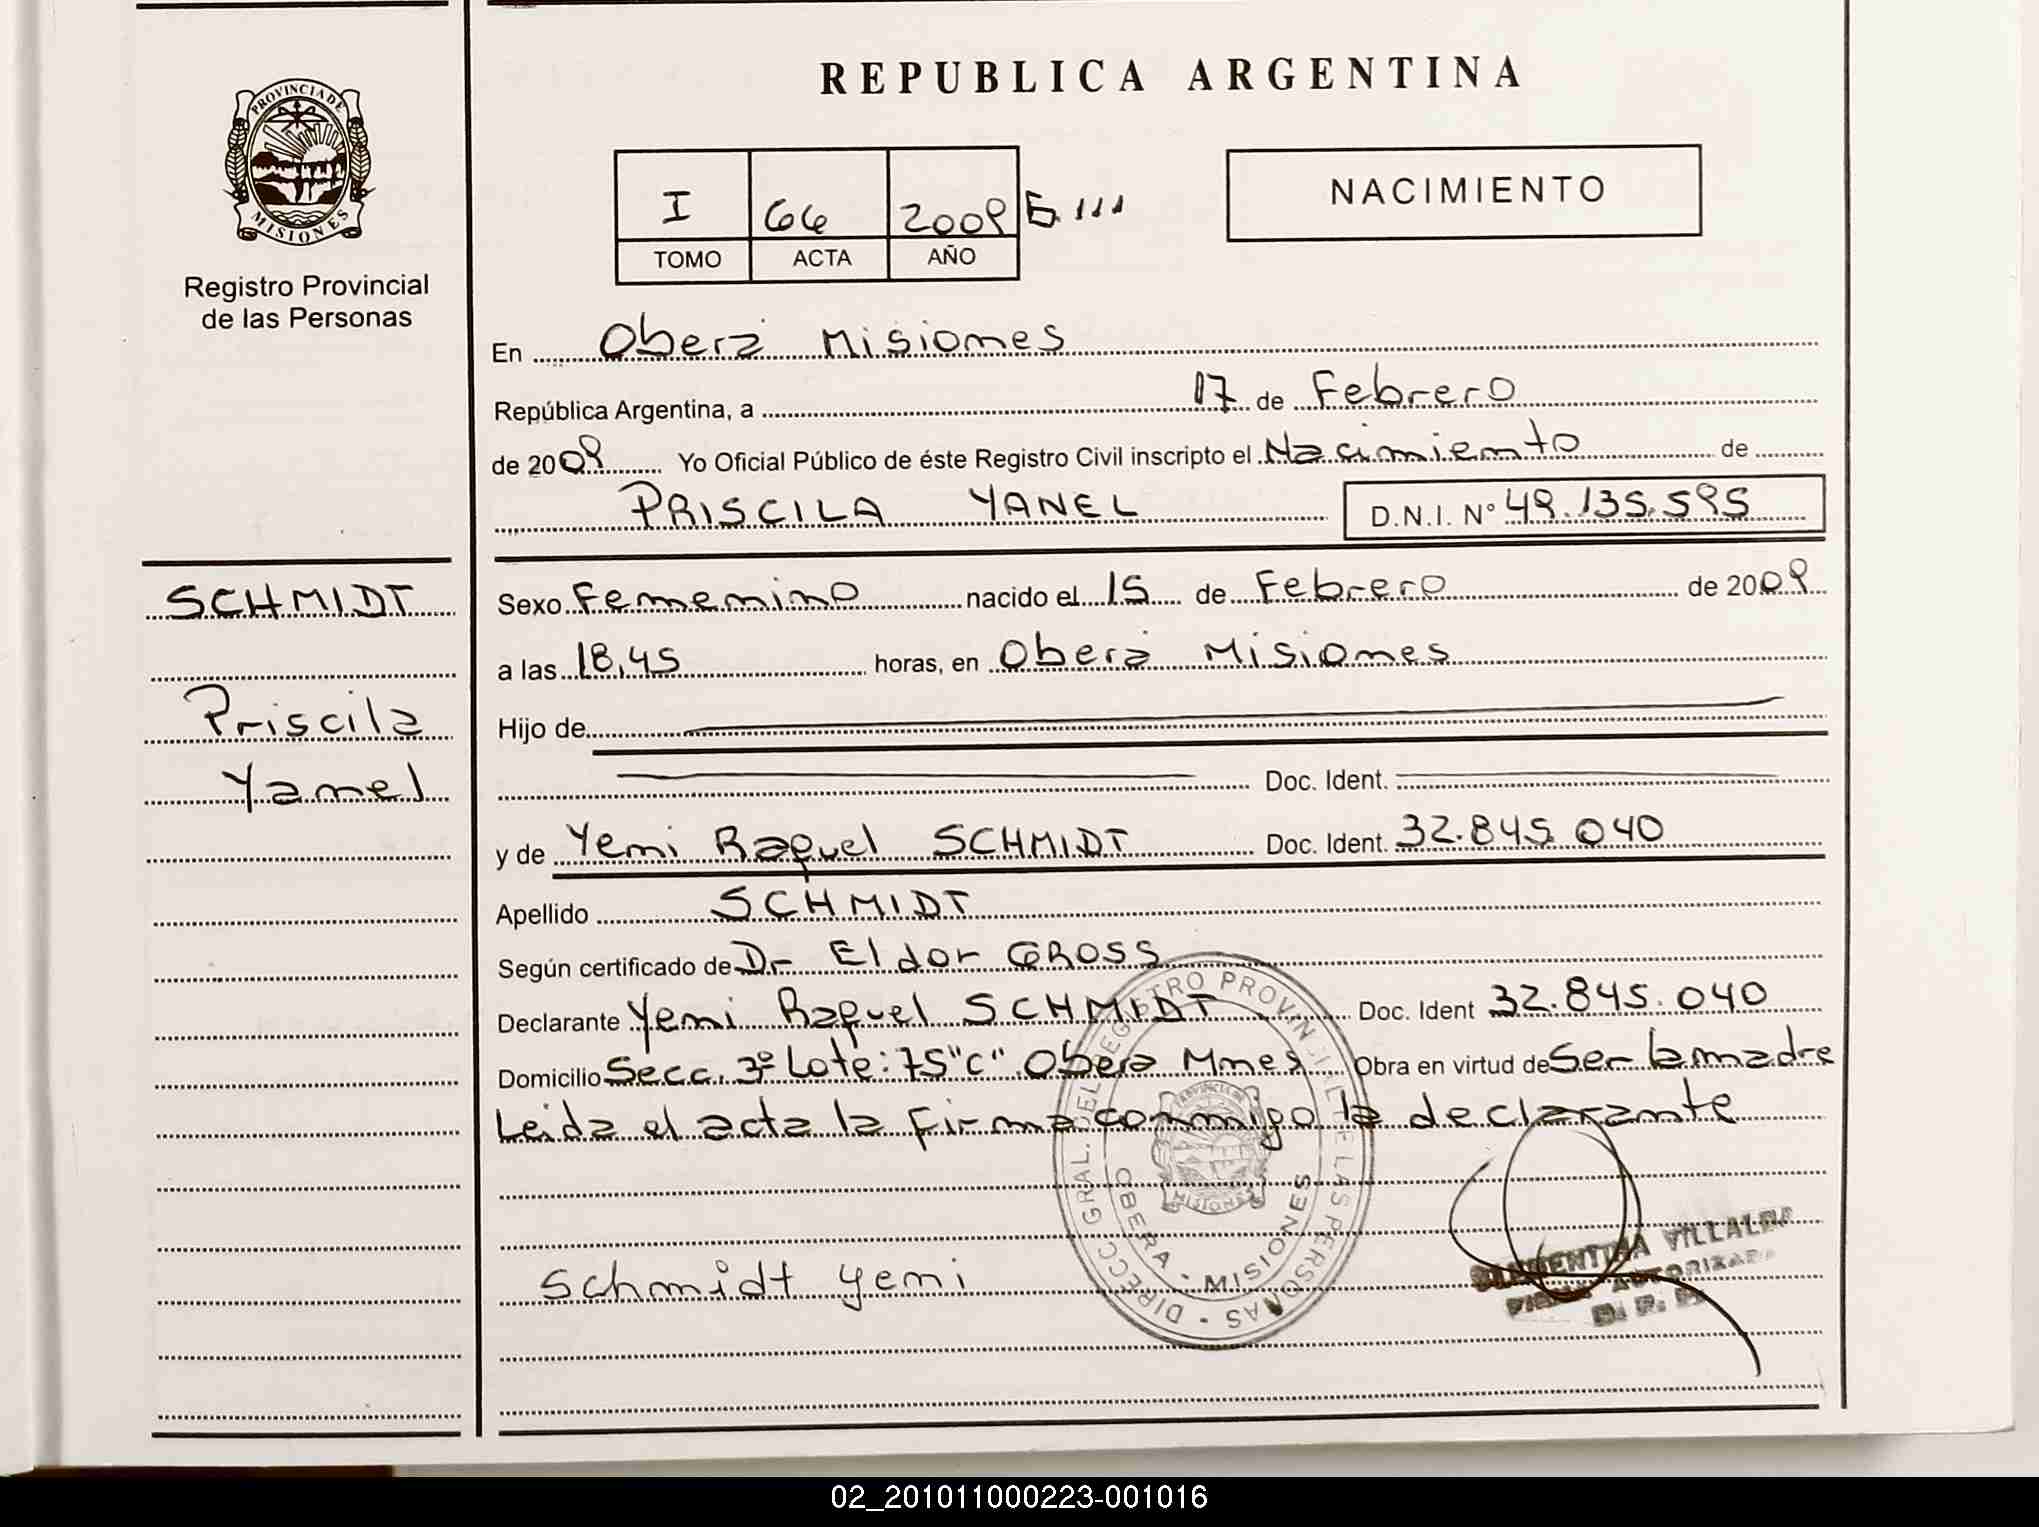 REPUBLICA ARGENTINA
PROVINCIA DE
MISIONES
Registro Provincial
de las Personas
I 66 2009 E.III
TOMO ACTA AÑO
NACIMIENTO
En Oberá Misiones
República Argentina, a 17 de Febrero
de 2009 Yo Oficial Público de éste Registro Civil inscripto el Nacimiento de
PRISCILA YANEL D.N.I. N° 49.135.595
SCHMIDT
Priscila
Yanel
Sexo Femenino nacido el 15 de Febrero de 2009
a las 18,45 horas, en Oberá Misiones
Hijo de
Doc. Ident.
y de Yemi Raquel SCHMIDT Doc. Ident. 32.845.040
Apellido SCHMIDT
Según certificado de Dr Eldor GROSS
Declarante Yemi Raquel SCHMIDT Doc. Ident 32.845.040
Domicilio Secc. 3° Lote: 75 "C" Oberá Mnes Obra en virtud de Ser la madre
Leida el acta la firma conmigo la declarante
Schmidt Yemi
DIRECC GRAL. DEL REGISTRO PROVINCIAL DE LAS PERSONAS
OBERA - MISIONES
VILLALBA
AUTORIZADA
02_201011000223-001016